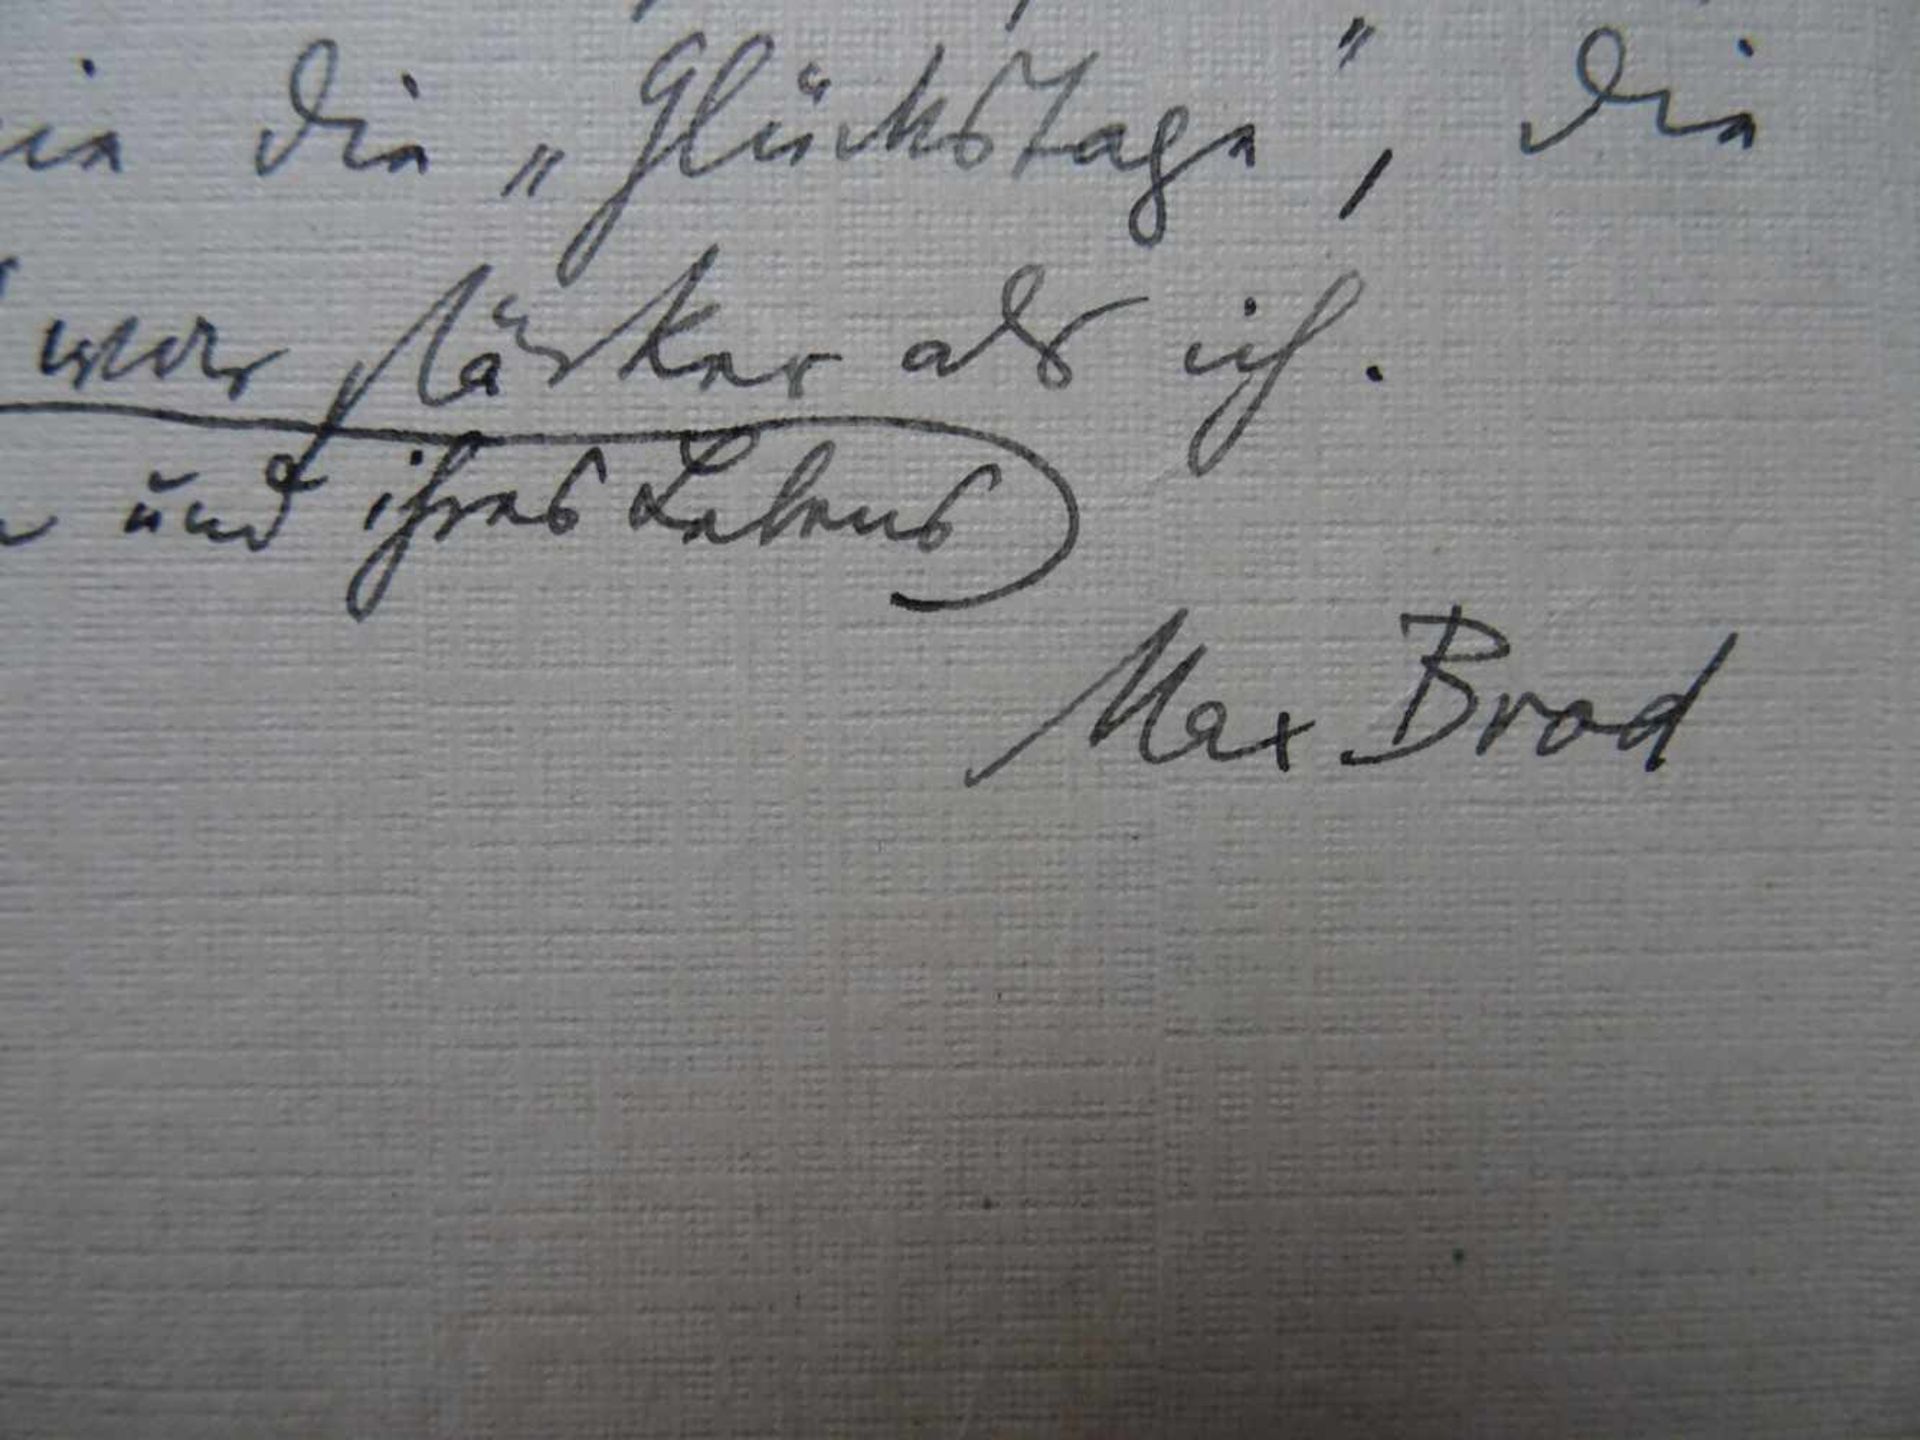 die „Glückstage", die
war stärker als ich.
und ihres Lebens
Max Brod